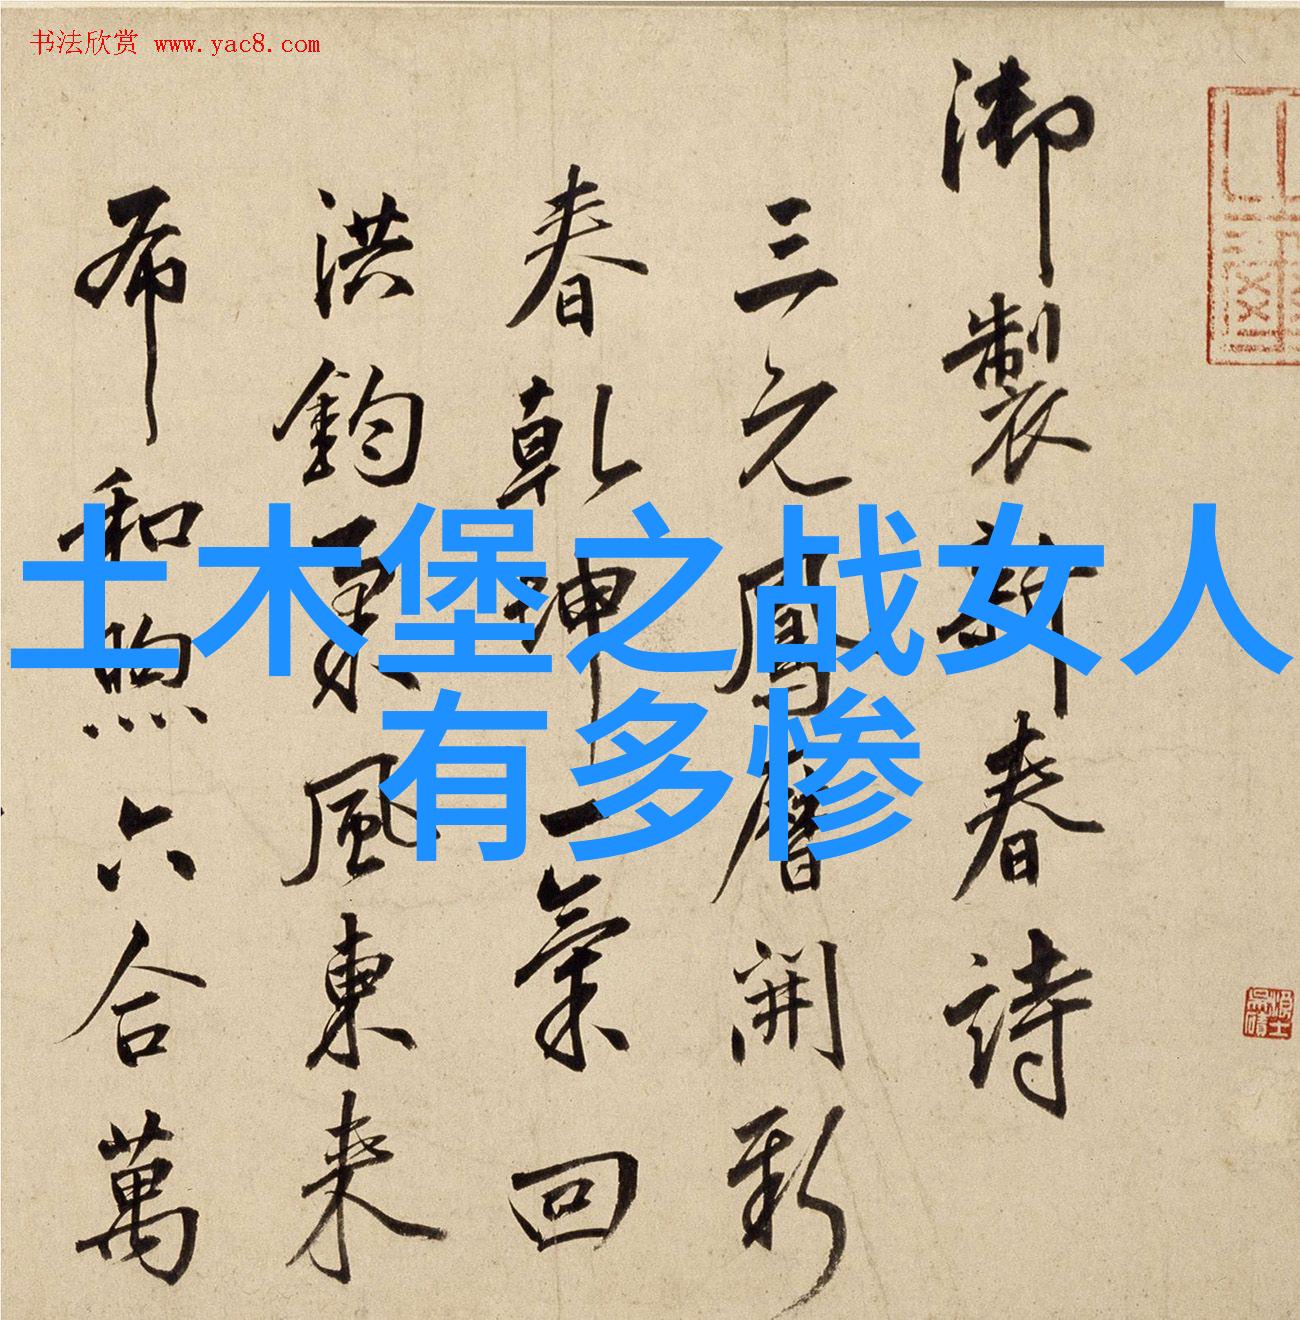 书法欣赏 www.yac8.com
土木堡之战女人
有多惨
御製新春詩
三元鳳曆開新
春乾坤一氣回
洪鈞風東来
布和煦六合萬